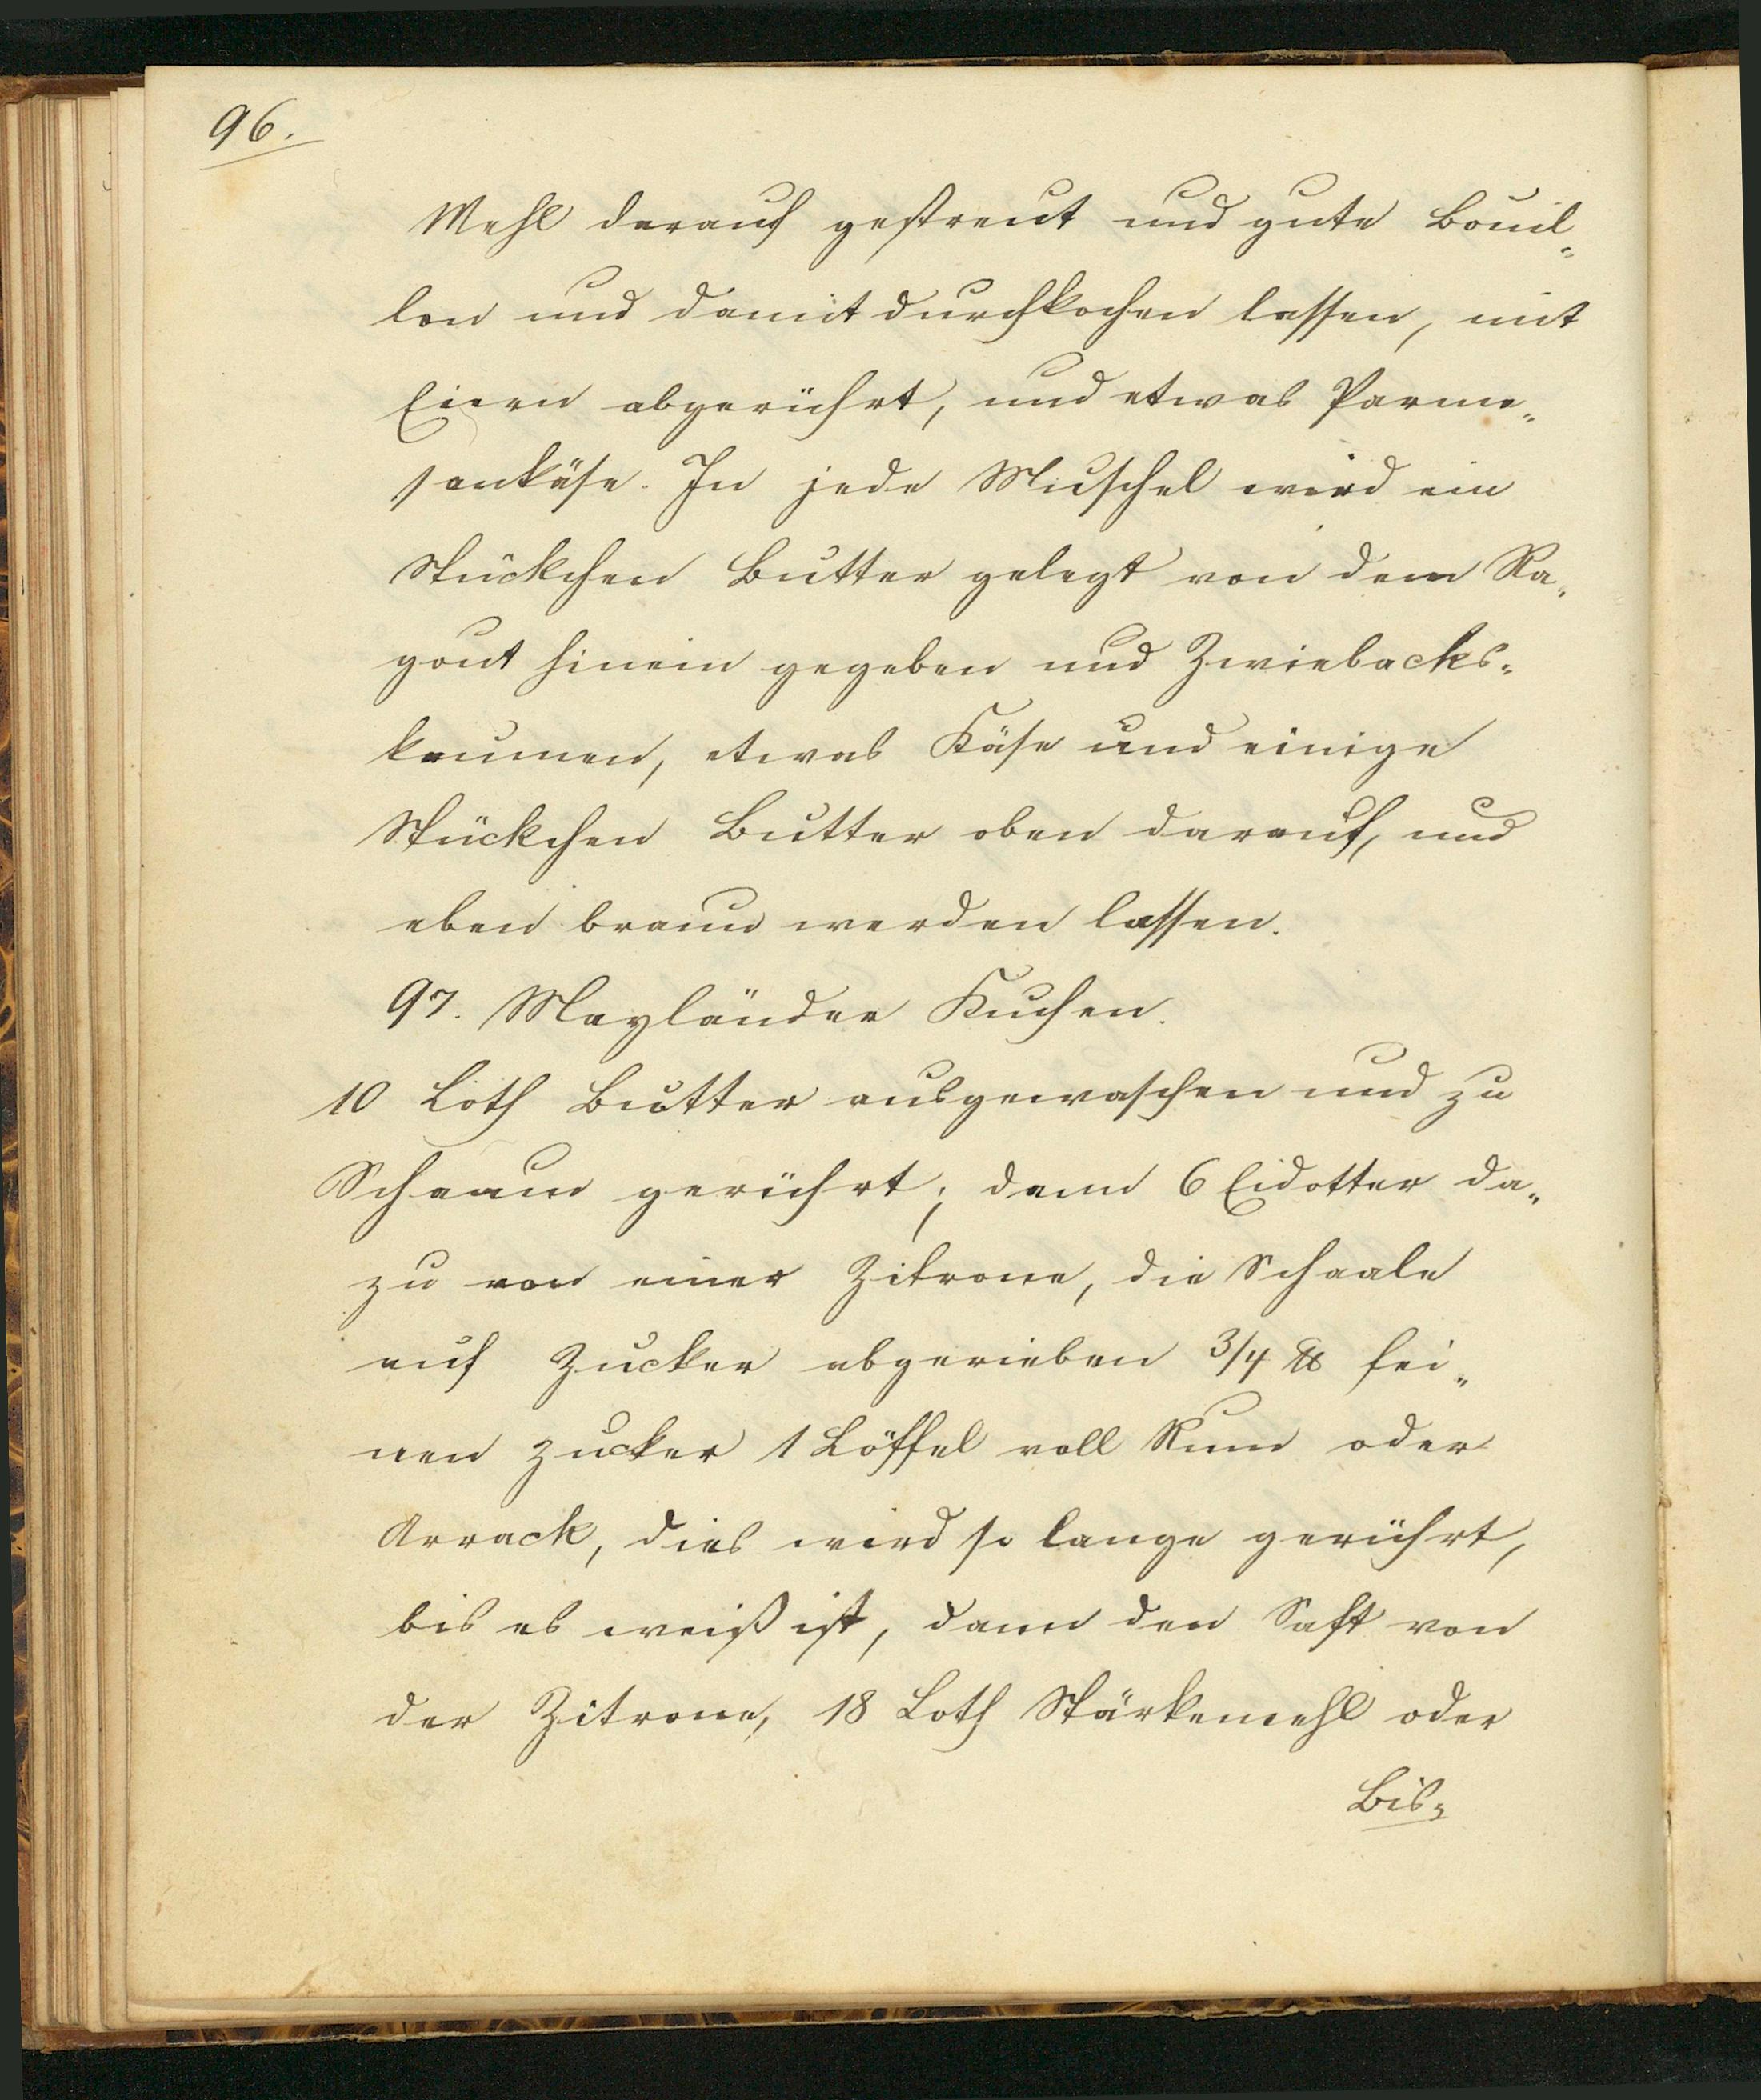 96.
Mehl darauf gestreut und gute Bouil=
lon und damit durchkochen lassen, mit
Eiern abgerührt, und etwas Parme=
sankäse. In jede Muschel wird ein
Stückchen Butter gelegt von dem Ra=
gout hinein gegeben und Zwiebacks=
kaumen, etwas Käse und einige
Stückchen Butter oben darauf, und
eben braun werden lassen.
97. Mayländer Kuchen.
10 Loth Butter ausgewaschen und zu
Schaum gerührt; dann 6 Eidotter da=
zu von einer Zitrone, die Schaale
auf Zucker abgerieben 3/4 ℔ fei=
nen Zucker 1 Löffel voll Rum oder
Arrack, dies wird so lange gerührt,
bis es weiß ist, dann den Saft von
der Zitrone, 18 Loth Stärkemehl oder
Bis=